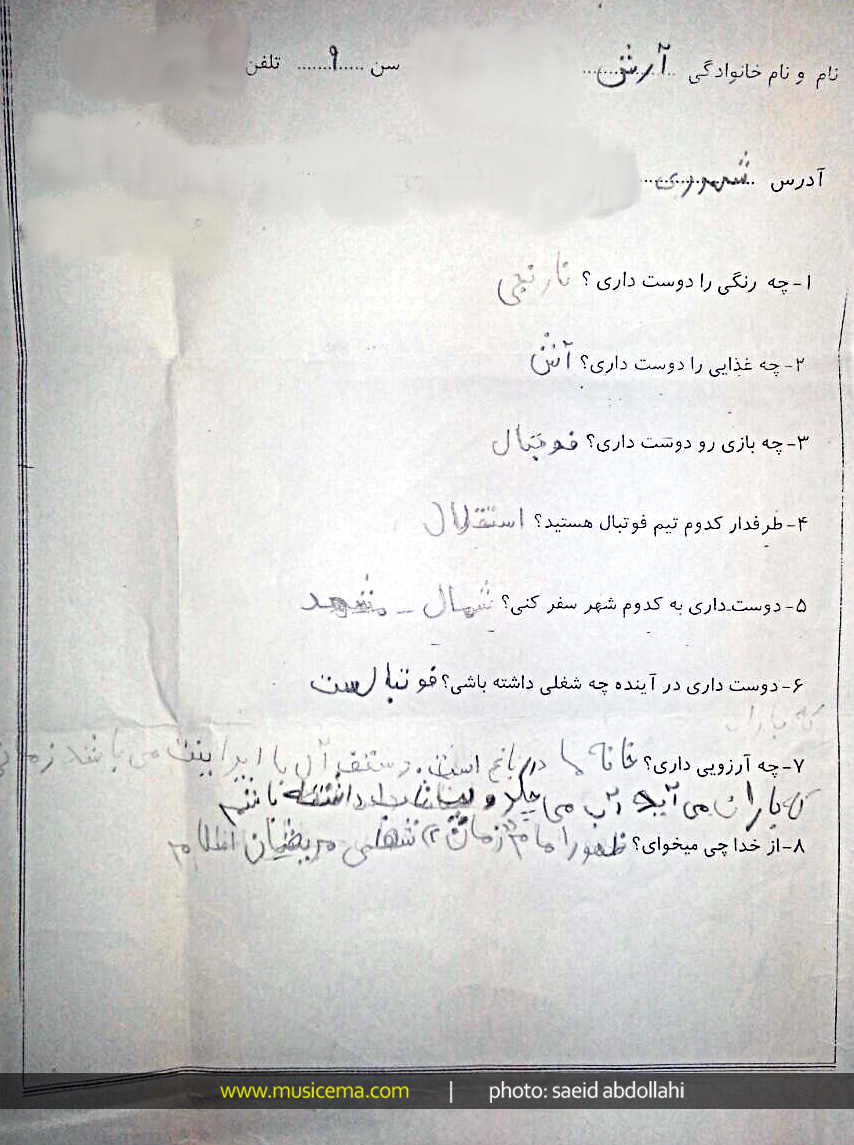 نام و نام خانوادگی آرش سن ۹ تلفن
آدرس شهرری
۱-چه رنگی را دوست داری؟ نارنجی
۲-چه غذایی را دوست داری؟ آش
۳-چه بازی رو دوست داری؟ فوتبال
۴-طرفدار کدوم تیم فوتبال هستید؟ استقلال
۵-دوست داری به کدوم شهر سفر کنی؟ شمال - مشهد
۶-دوست داری در آینده چه شغلی داشته باشی؟ فوتبالست
که باران
۷-چه آرزویی داری؟ خانه ما در باغ است. و سقف آن با ایرانیت می باشد زمانی
که باران می آید آب می چکد و داشته باشم
۸-از خدا چی میخوای؟ ظهور امام زمان (۲ شفای مریضان
www.musicema.com | photo: saeid abdollahi